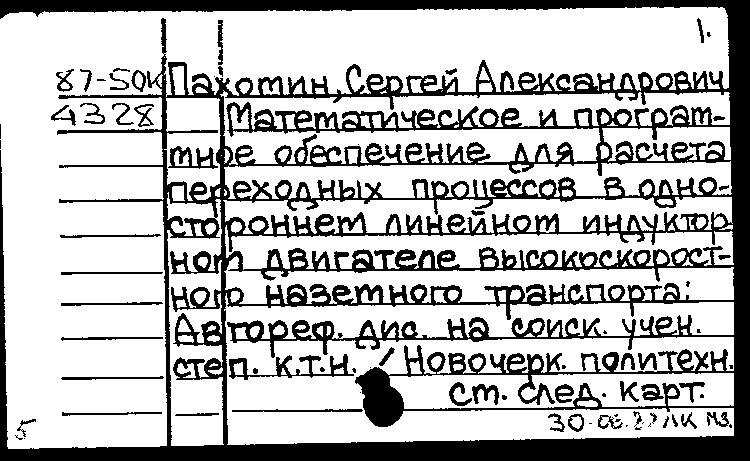 1.
87-50К Пахотин, Сергей Александрович
4328 Математическое и програм-
мное обеспечение для расчета
переходных процессов в одно-
стороннем линейном индуктор-
ном двигателе высокоскорост-
ного наземного транспорта:
Автореф. дис. на соиск. учен.
степ. к.т.н. / Новочерк. политехн.
ст. след. карт.
30.06.87
5